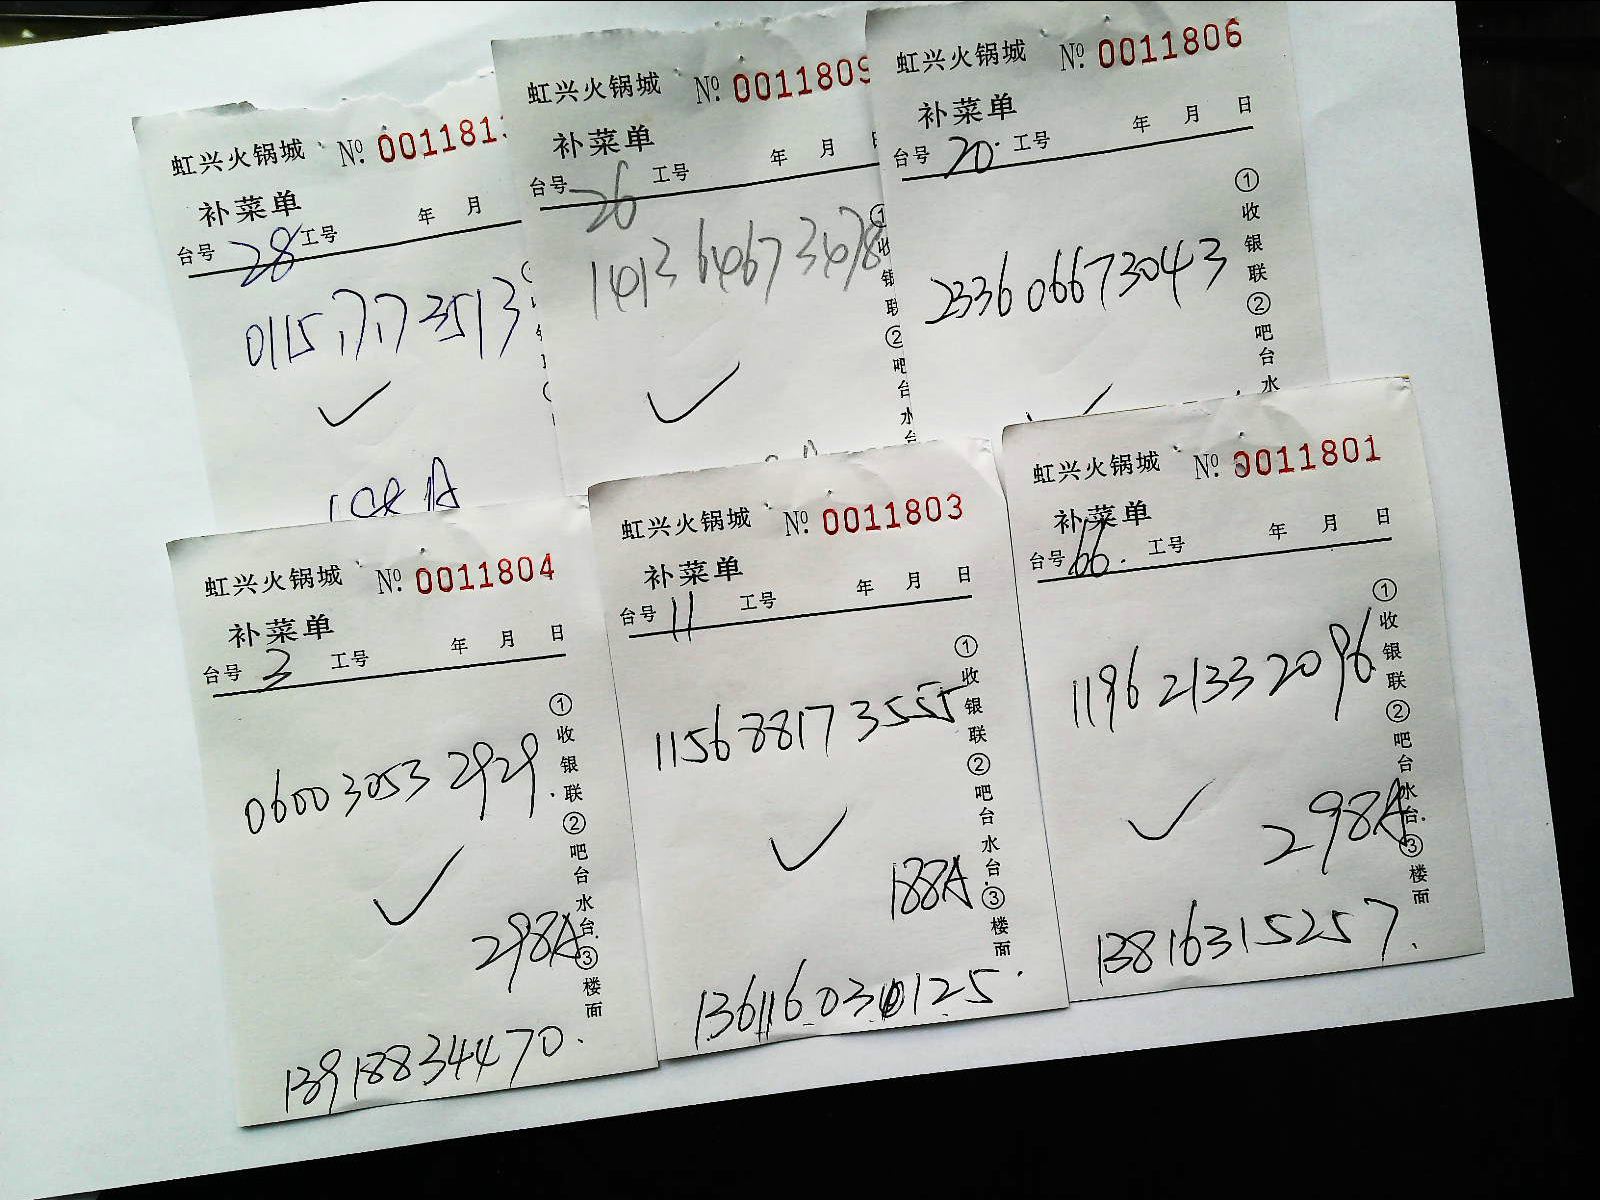 虹兴火锅城 № 001181
补菜单
年 月
台号 28 工号
0115 7173513
虹兴火锅城 № 0011809
补菜单
年 月
台号 26 工号
①收银联②吧台水台
虹兴火锅城 № 0011806
补菜单
年 月 日
台号 20 工号
233606673043
①收银联②吧台水
虹兴火锅城 № 0011804
补菜单
年 月 日
台号 3 工号
060030532929.
298A
13918834470.
①收银联②吧台水台③楼面
虹兴火锅城 № 0011803
补菜单
年 月 日
台号 11 工号
115688173555
188A.
①收银联②吧台水台③楼面
虹兴火锅城 № 0011801
补菜单
年 月 日
台号 66. 工号
119621332096
298A
13816315257.
①收银联②吧台水台③楼面